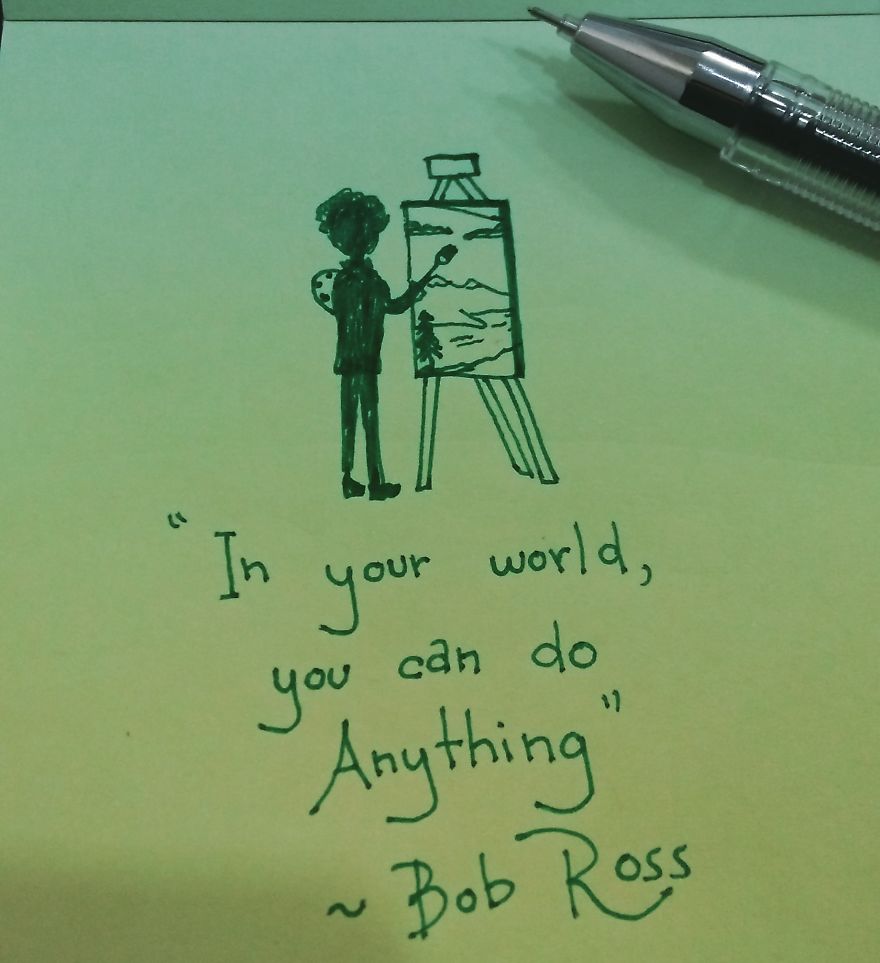 “In your world,
you can do
Anything”
~ Bob Ross